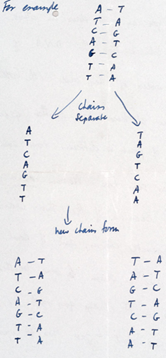 For example
A - T
T - A
C - G
A - T
G - C
T - A
T - A
chains
separate
A
T
C
A
G
T
T
T
A
G
T
C
A
A
new chains form
A - T
T - A
C - G
A - T
G - C
T - A
T - A
T - A
A - T
G - C
T - A
C - G
A - T
A - T